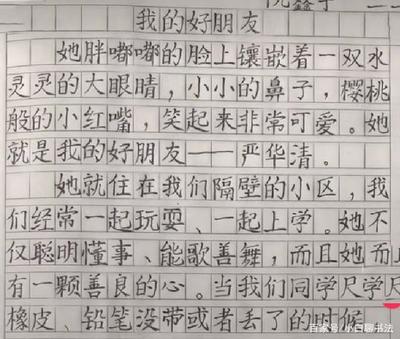 我的好朋友
她胖嘟嘟的脸上镶嵌着一双水
灵灵的大眼睛，小小的鼻子，樱桃
般的小红嘴，笑起来非常可爱。她
就是我的好朋友——严华清。
她就住在我们隔壁的小区，我
们经常一起玩耍、一起上学。她不
仅聪明懂事、能歌善舞，而且她而且
有一颗善良的心。当我们同学尺学尺
橡皮、铅笔没带或者丢了的时候
百家号/小口聊书法